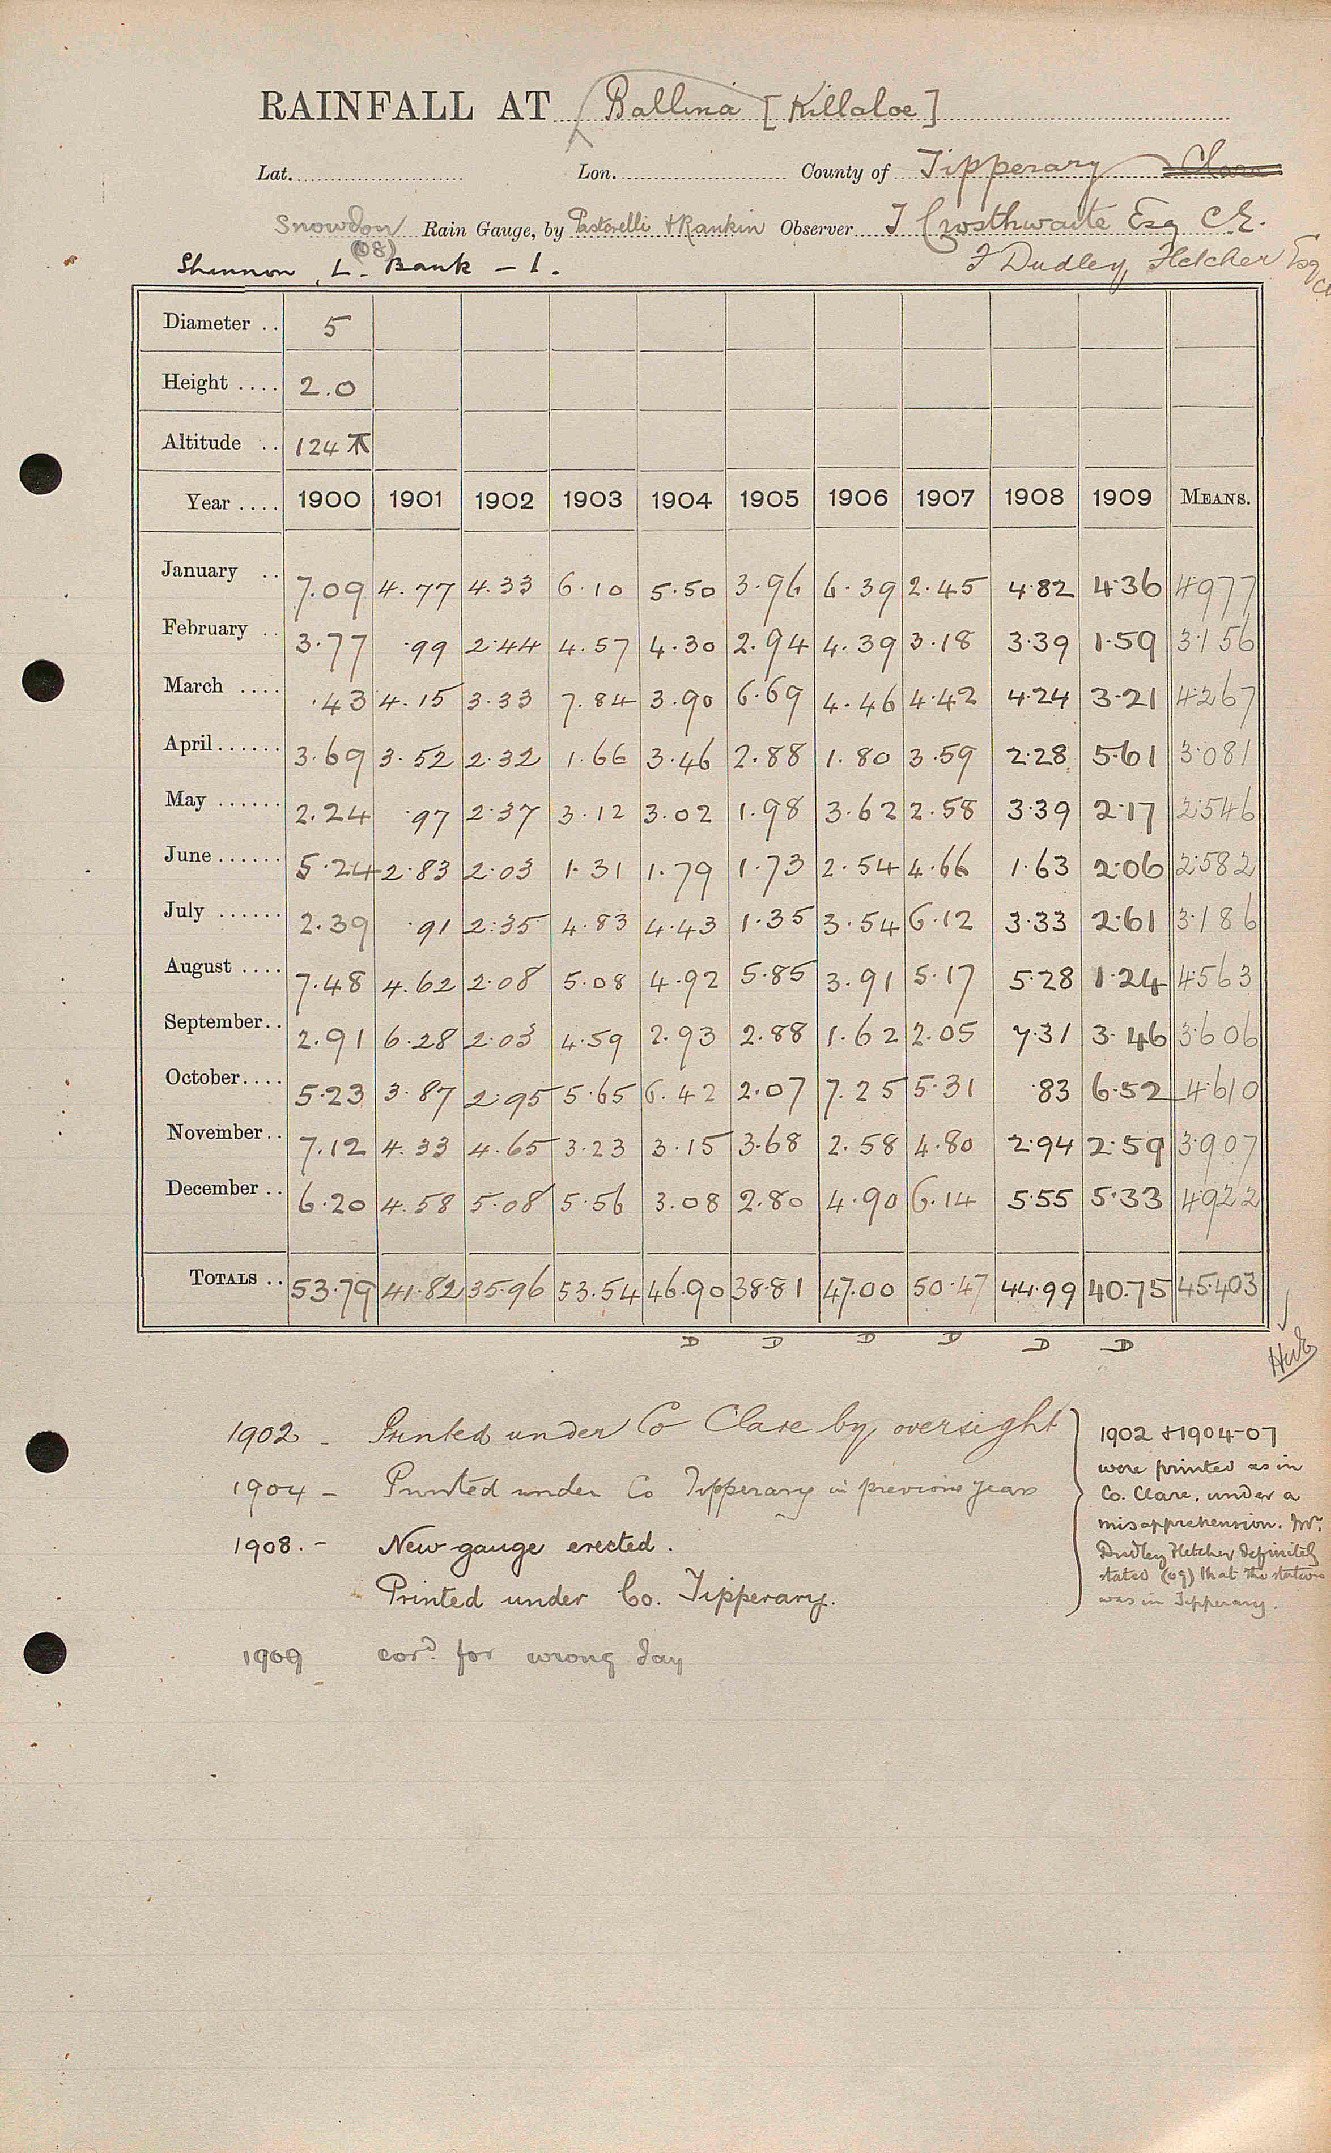 RAINFALL AT Ballina [Killaloe]
Lat. Lon. County of Tipperary Clare
Snowdon Rain Gauge, by Pastorelli & Rankin Observer J Crosthwaite Esq C.E.
(08)
Shannon, L. Bank - 1. F Dudley Fletcher Esq CE
Diameter .. 5
Height .... 2.0
Altitude .. 124
Year .... 1900 1901 1902 1903 1904 1905 1906 1907 1908 1909 MEANS.
January .. 7.09 4.77 4.33 6.10 5.50 3.96 6.39 2.45 4.82 4.36 4977
February .. 3.77 .99 2.44 4.57 4.30 2.94 4.39 3.18 3.39 1.59 3.156
March .... .43 4.15 3.33 7.84 3.90 6.69 4.46 4.42 4.24 3.21 4267
April ...... 3.69 3.52 2.32 1.66 3.46 2.88 1.80 3.59 2.28 5.61 3.081
May ...... 2.24 .97 2.37 3.12 3.02 1.98 3.62 2.58 3.39 2.17 2.546
June ...... 5.24 2.83 2.03 1.31 1.79 1.73 2.54 4.66 1.63 2.06 2.582
July ...... 2.39 .91 2.35 4.83 4.43 1.35 3.54 6.12 3.33 2.61 3.186
August .... 7.48 4.62 2.08 5.08 4.92 5.85 3.91 5.17 5.28 1.24 4563
September .. 2.91 6.28 2.03 4.59 2.93 2.88 1.62 2.05 7.31 3.46 3.606
October .... 5.23 3.87 2.95 5.65 6.42 2.07 7.25 5.31 .83 6.52 4.610
November .. 7.12 4.33 4.65 3.23 3.15 3.68 2.58 4.80 2.94 2.59 3.907
December .. 6.20 4.58 5.08 5.56 3.08 2.80 4.90 6.14 5.55 5.33 4.922
TOTALS .. 53.79 41.82 35.96 53.54 46.90 38.81 47.00 50.47 44.99 40.75 45.403
D D D D D D
1902 - Printed under Co Clare by oversight
1904 - Printed under Co Tipperary in previous years
1908. - New gauge erected.
Printed under Co. Tipperary.
1909 cord. for wrong day
1902 & 1904-07
were printed as in
Co. Clare, under a
misapprehension. Mr.
Dudley Fletcher definitely
stated (09) that the station
was in Tipperary.